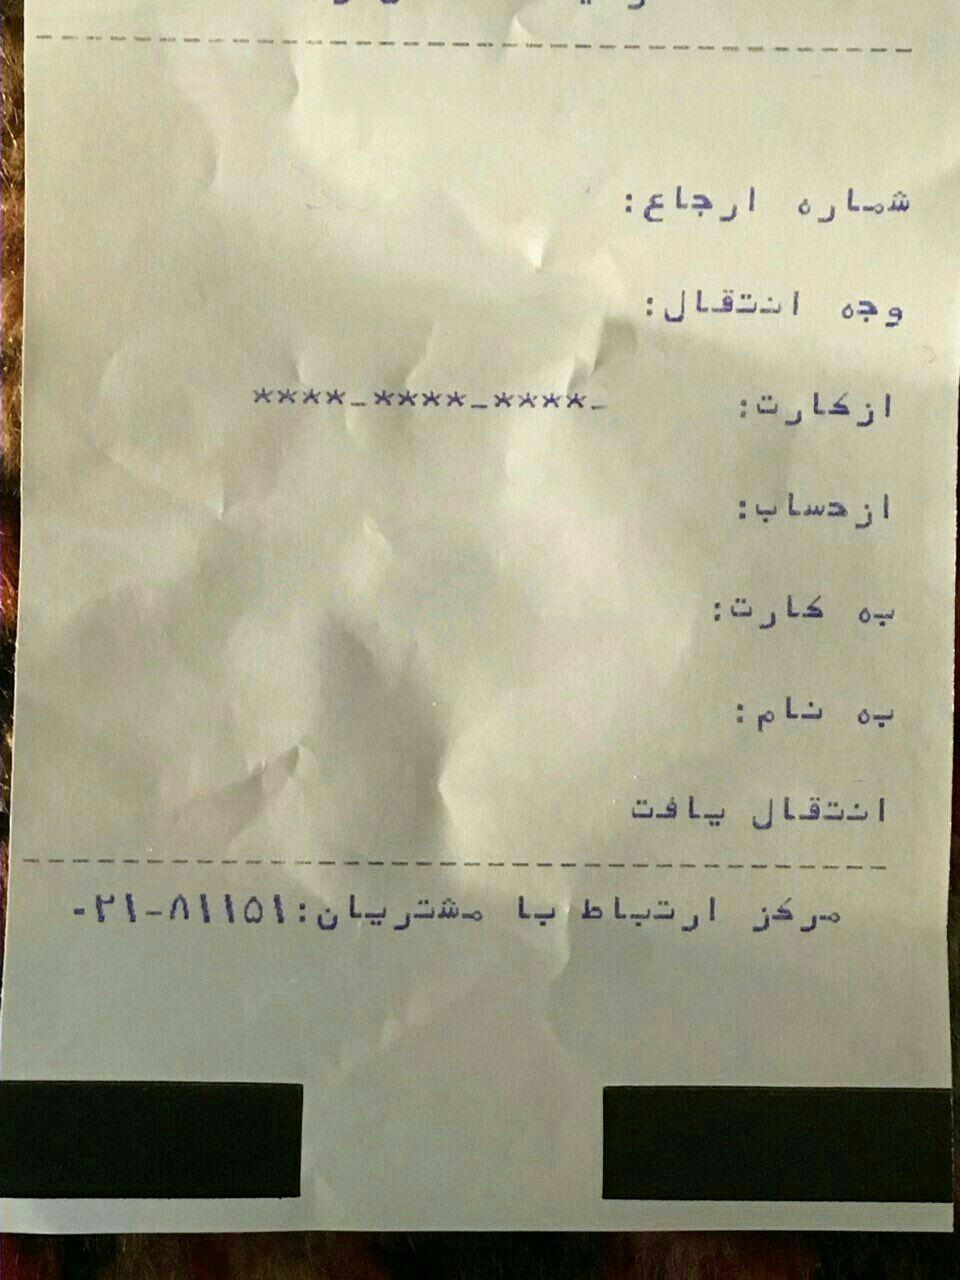 شماره ارجاع:
وجه انتقال:
ازکارت: ****-****-****-
ازحساب:
به کارت:
به نام:
انتقال یافت
مرکز ارتباط با مشتریان:۸۱۱۵۱-۰۲۱